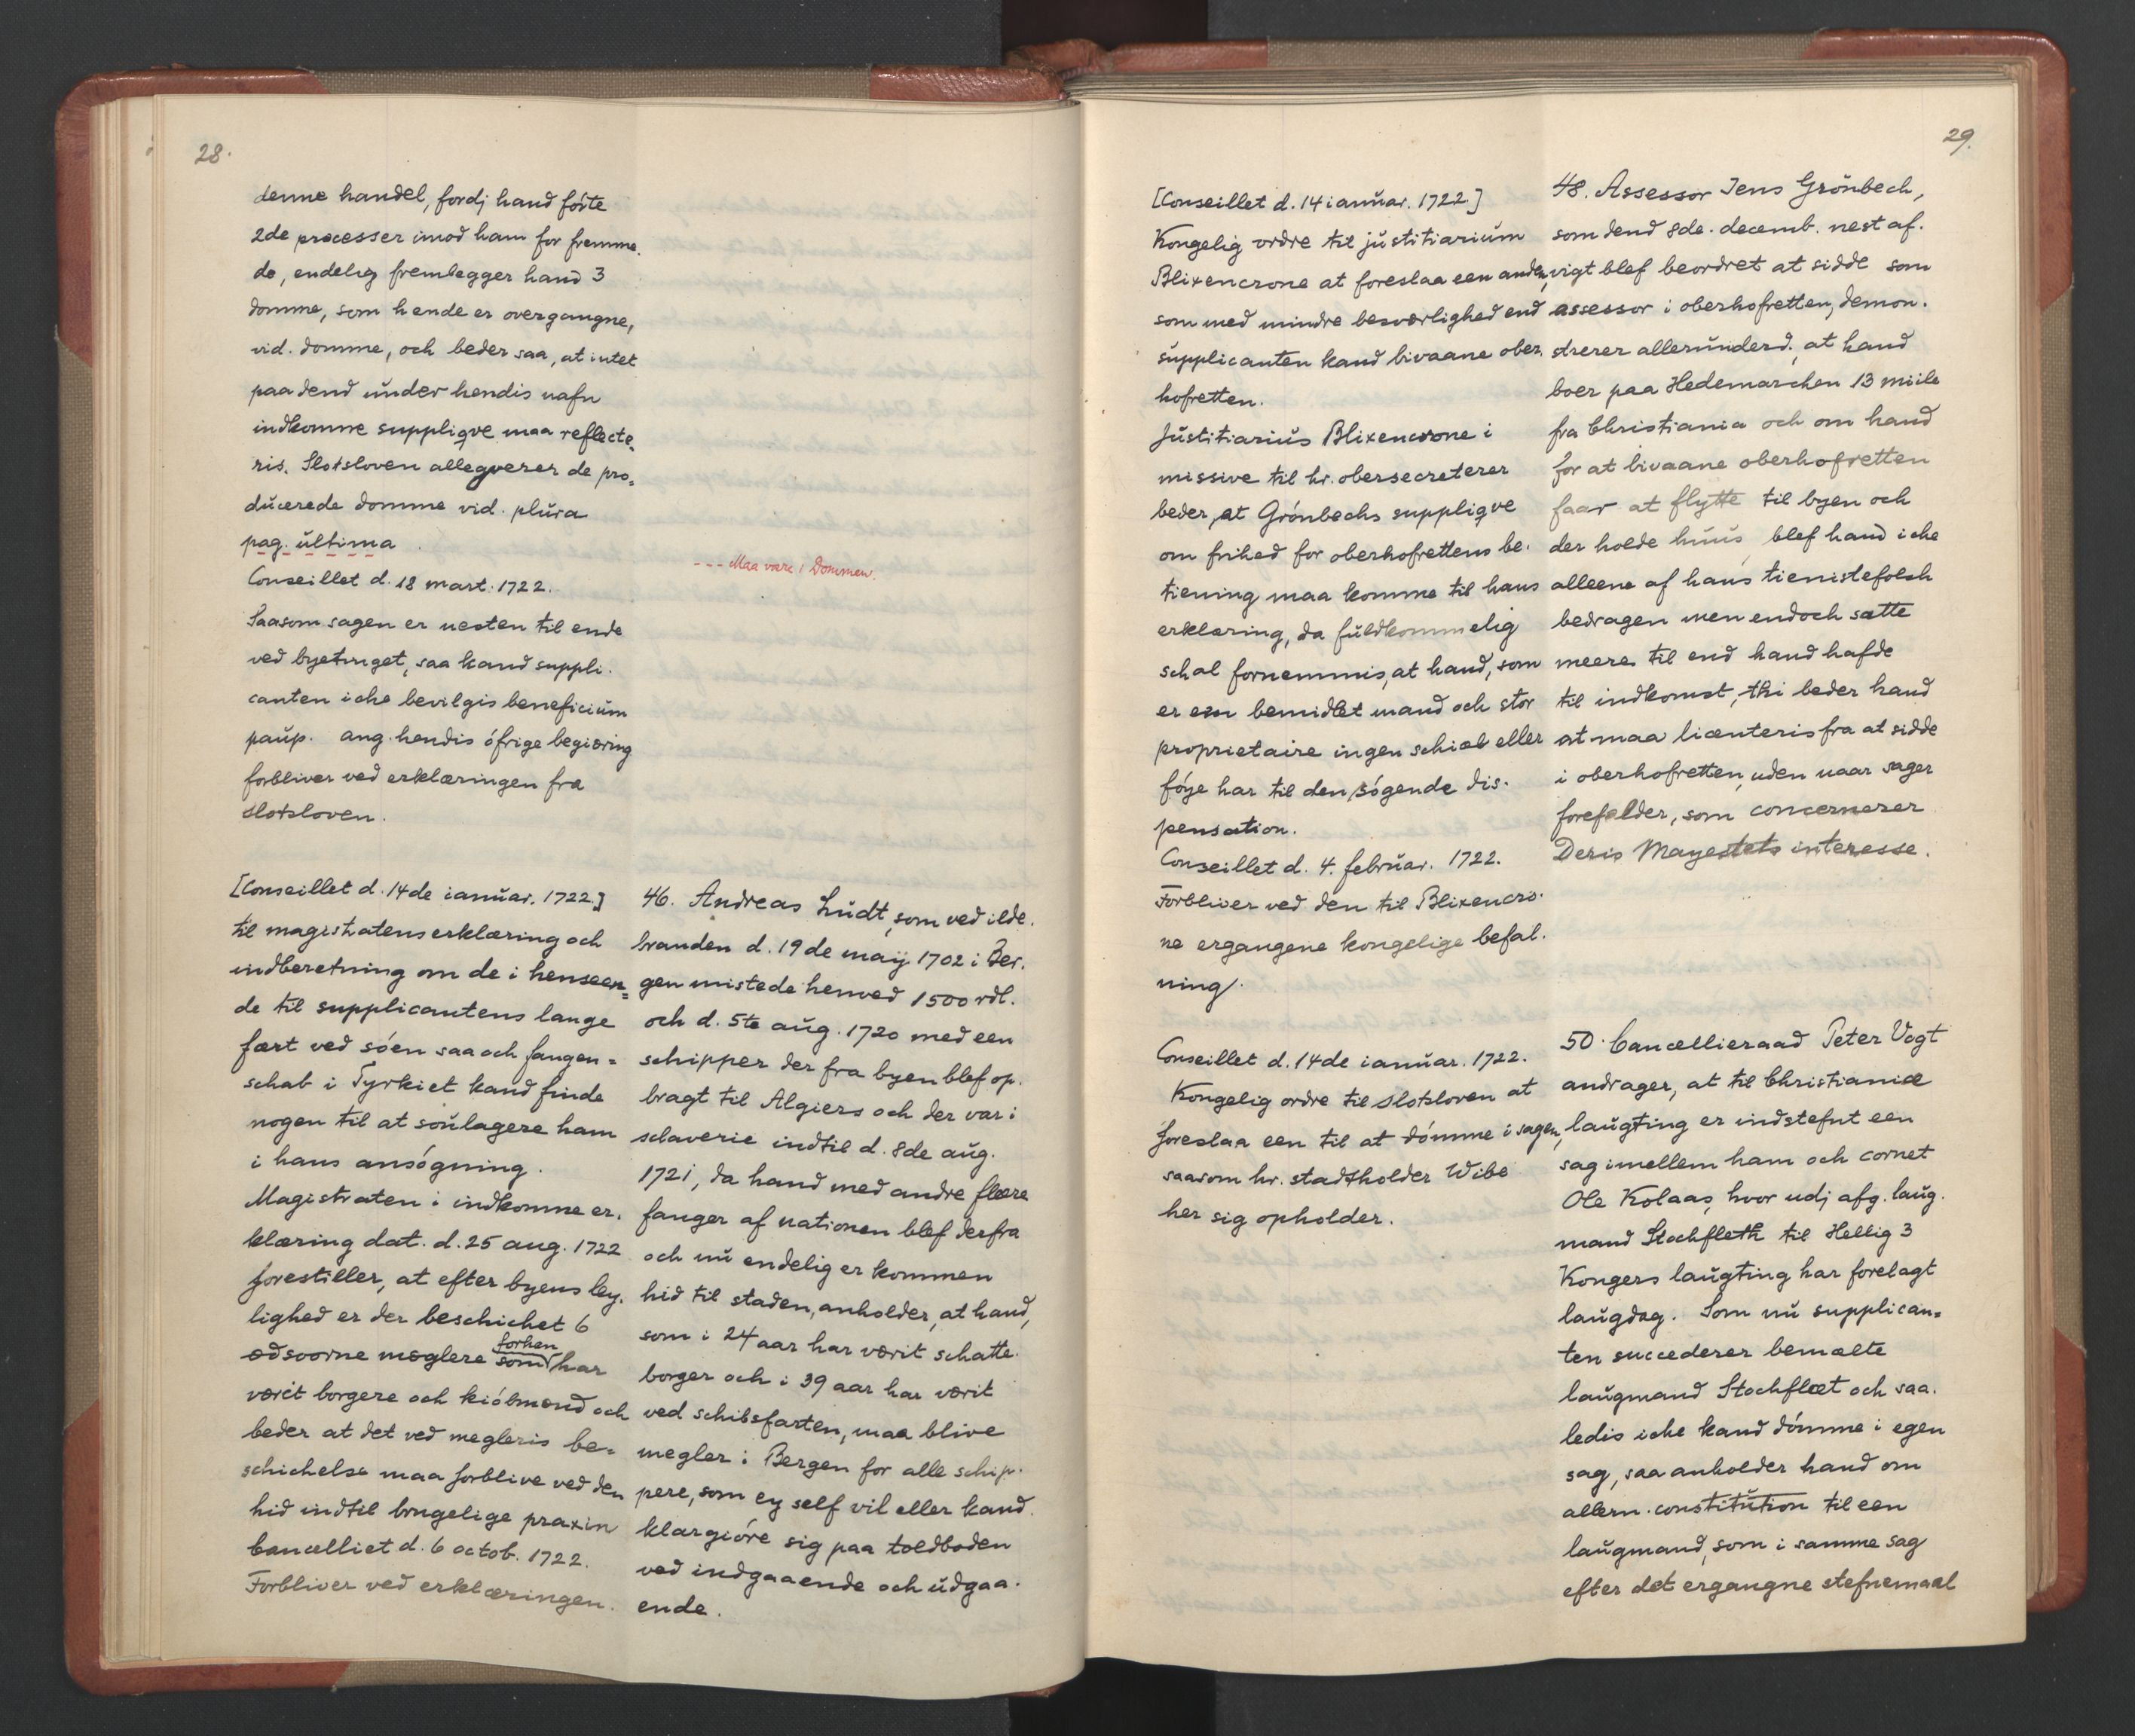 28.
denne handel, fordj hand förte
2de processer imod ham for fremme.
de, endelig fremlegger hand 3
domme, som hende er overgangne,
vid. domme, och beder saa, at intet
paa dend under hendis nafn
indkomne suppliqve maa reflecte=
ris. Slotsloven allegverer de pro=
ducerede domme vid. plura
pag. ultima
Conseillet d. 18 mart. 1722.
Saasom sagen er nesten til ende
ved byetinget, saa kand suppli.
canten iche bevilgis beneficium
paup. ang. hendis öfrige begiæring
forbliver ved erklæringen fra
slotsloven.
--- Maa være i Dommen.
[Conseillet d. 14de ianuar. 1722]
til magistratens erklæring och
indberetning om de i henseen=
de til supplicantens lange
fært ved söen saa och fangen=
schab i Tyrkiet kand finde
nogen til at soulagere ham
i hans ansögning.
Magistraten i indkomne er.
klæring dat. d. 25 aug. 1722
forestiller, at efter byens ley.
lighed er der beschichet 6
forhen
ædsvorne mæglere som har
værit borgere och kiöbmænd och
beder at det ved megleris be=
schichelse maa forblive ved den
hid indtil brugelige praxin
Cancelliet d. 6 octob. 1722.
Forbliver ved erklæringen.
46. Andreas Ludt, som ved ilde.
branden d. 19de maij 1702 i Ber.
gen mistede henved 1500 rdl.
och d. 5te aug. 1720 med een
schipper der fra byen blef op.
bragt til Algiers och der var i
sclaverie indtil d. 8de aug.
1721, da hand med andre flere
fanger af nationen blef derfra
och nu endelig er kommen
hid til staden, anholder, at hand,
som i 24 aar har værit schatte.
borger och i 39 aar har værit
ved schibsfarten, maa blive
megler i Bergen for alle schip.
pere, som ey self vil eller kand
klargiöre sig paa toldboden
ved indgaaende och udgaa.
ende.
29.
[Conseillet d. 14 ianuar. 1722]
Kongelig ordre til justitiarium
Blixencrone at foreslaa een anden,
som med mindre besværlighed end
supplicanten kand bivaane ober.
hofretten.
Justitiarius Blixencrone i
missive til hr. obersecreterer
beder, at Grönbechs suppliqve
om frihed for oberhofrettens be.
tiening maa komme til hans
erklæring, da fuldkommelig
schal fornemmis, at hand, som
er een bemidlet mand och stor
proprietaire ingen schiæl eller
föye har til den sögende dis.
pensation.
Conseillet d. 4. februar. 1722.
Forbliver ved den til Blixencro.
ne ergangene kongelige befal.
ning.
48. Assessor Jens Grönbech,
som dend 8de. decemb. nest af.
vigt blef beordret at sidde som
assessor i oberhofretten, demon.
strerer allerunderd., at hand
boer paa Hedemarchen 13 miile
fra Christiania och om hand
for at bivaane oberhofretten
faar at flytte til byen och
der holde huus blef hand iche
alleene af hans tienistefolch
bedragen men endoch sætte
meere til end hand hafde
til indkomst, thi beder hand
at maa licenteris fra at sidde
i oberhofretten, uden naar sager
forefalder, som concernerer
Deris Mayestets interesse.
Conseillet d. 14de ianuar. 1722.
Kongelig ordre til slotsloven at
foreslaa een til at dömme i sagen,
saasom hr. stadtholder Wibe
her sig opholder.
50. Cancellieraad Peter Vogt
andrager, at til Christianiæ
laugting er indstefnt een
sag imellem ham och cornet
Ole Kolaas, hvor udj afg. laug.
mand Stochfleth til Hellig 3
Kongers laugting har forelagt
laugdag. Som nu supplican=
ten succederer bemælte
laugmand Stochflæt och saa.
ledis iche kand dömme i egen
sag, saa anholder hand om
allern. constitution til een
laugmand, som i samme sag
efter det ergangne stefnemaal